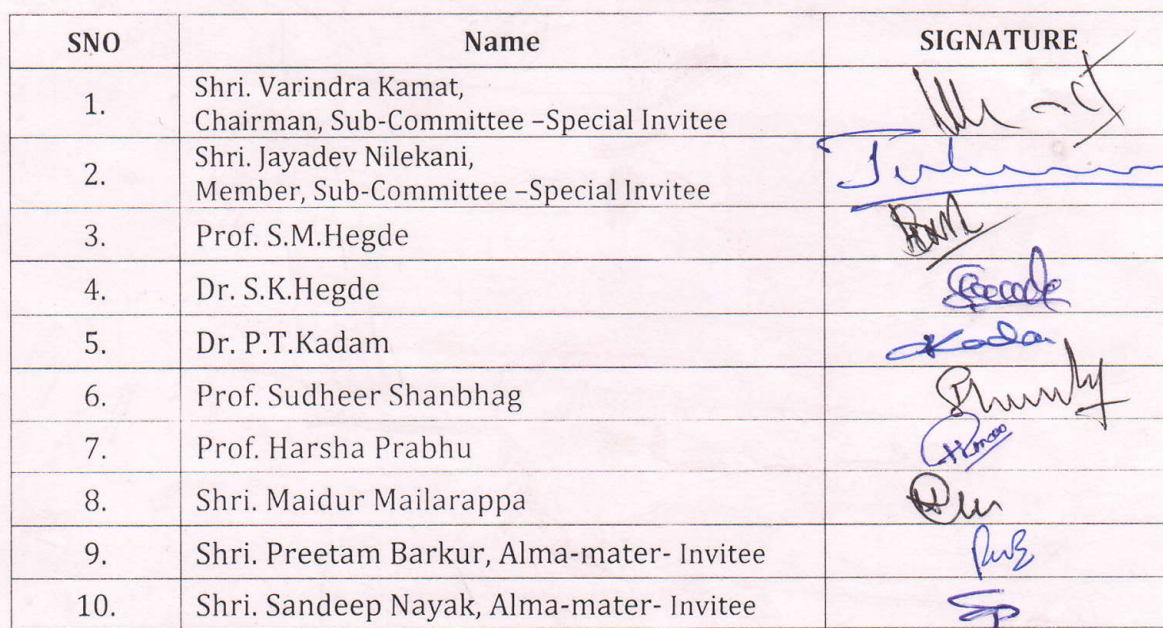 SNO Name SIGNATURE
1. Shri. Varindra Kamat,
Chairman, Sub-Committee –Special Invitee
2. Shri. Jayadev Nilekani,
Member, Sub-Committee –Special Invitee
3. Prof. S.M.Hegde
4. Dr. S.K.Hegde
5. Dr. P.T.Kadam Kadam
6. Prof. Sudheer Shanbhag
7. Prof. Harsha Prabhu
8. Shri. Maidur Mailarappa
9. Shri. Preetam Barkur, Alma-mater- Invitee
10. Shri. Sandeep Nayak, Alma-mater- Invitee